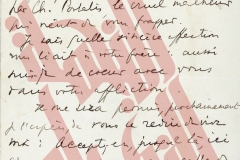 cher Ché Portalis le cruel malheur
qui vient de vous frapper.
Je sais quelle sincère affection
vous à votre frère aussi
suis-je de cœur avec vous
dans votre affliction
Il me sera permis, prochainement
je l'espère, de vous le redire de vive
voix : Acceptez, jusque là ici